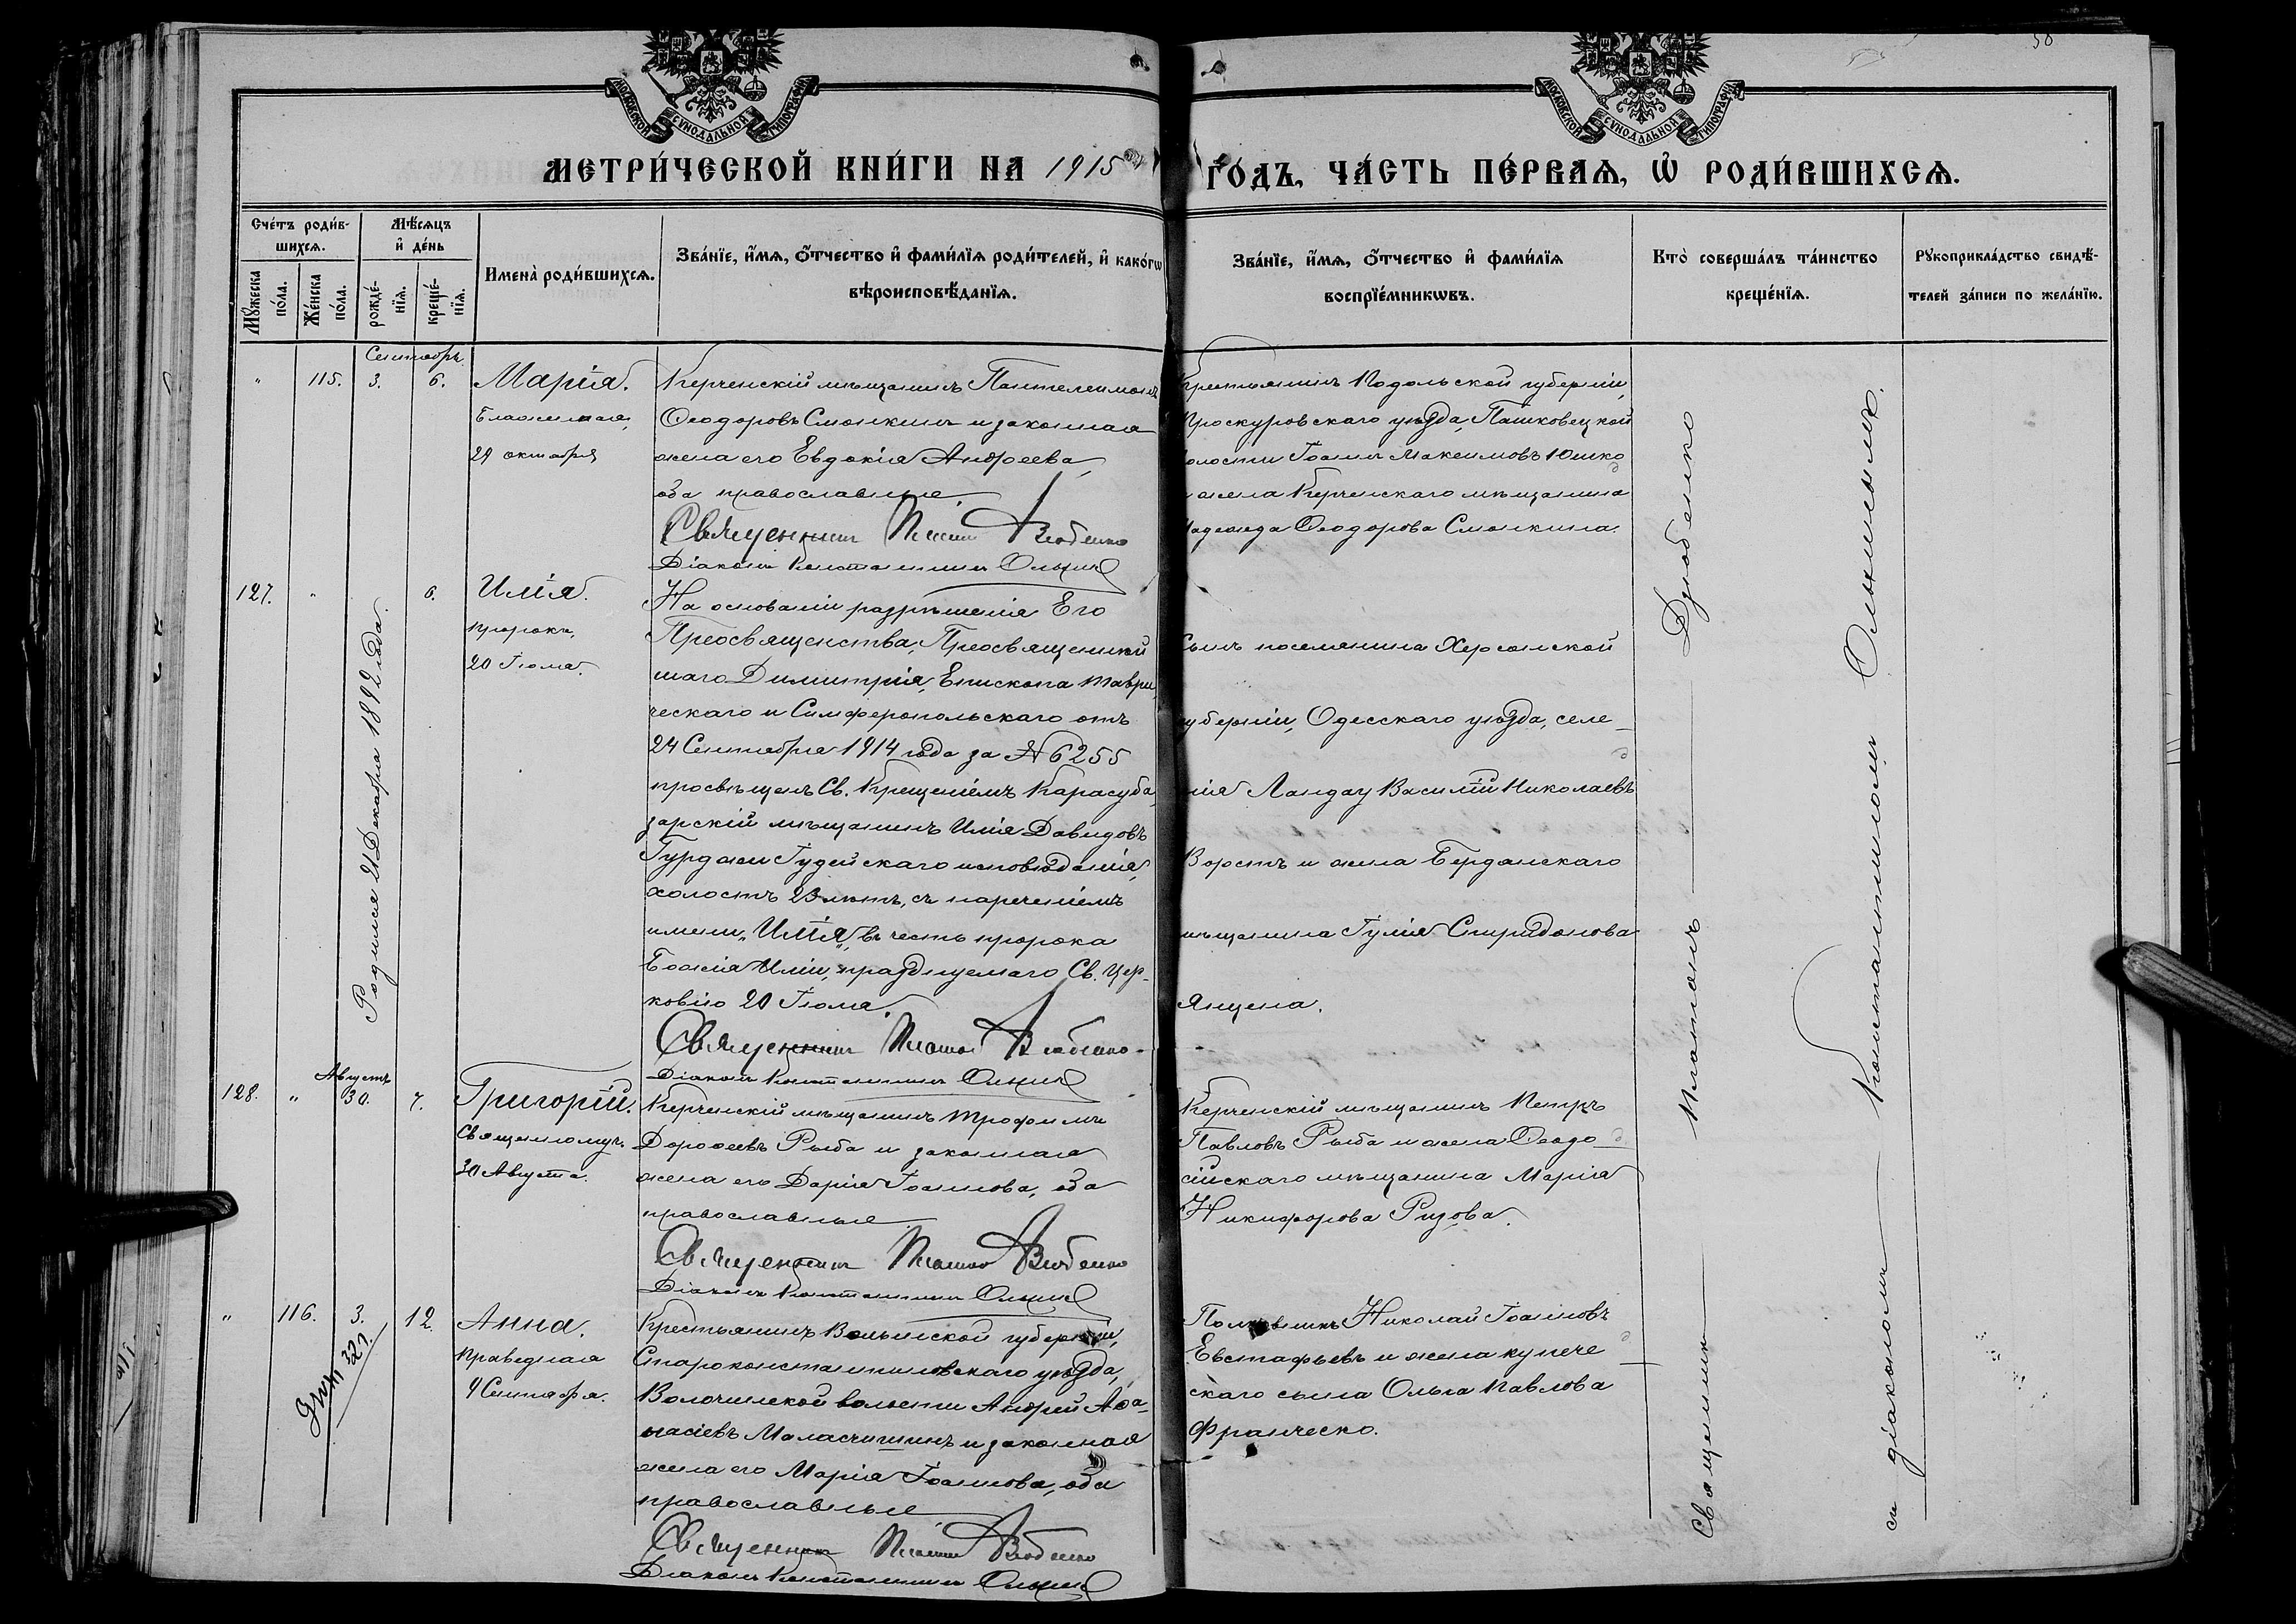 58
МОСКОВСКОЙ СѴНОДАЛЬНОЙ ТИПОГРАФІИ
МОСКОВСКОЙ СѴНОДАЛЬНОЙ ТИПОГРАФІИ
МЕТРИ́ЧЕСКОЙ КНИ́ГИ НА 1915
ГО́ДЪ, ЧА́СТЬ ПЕ́РВАѦ, Ѽ РОДИ́ВШИХСѦ.
Сче́тъ роди́в-
шихсѧ.
Мꙋ́жеска по́ла.
Же́нска по́ла.
Мѣ́сѧцъ
и҆ де́нь
рожде́-
нїѧ.
креще́-
нїѧ.
Имена̀ роди́вшихсѧ.
Зва́нїе, и҆́мѧ, ѻ҆́тчество и҆ фами́лїѧ роди́телей, и҆ како́гѡ
вѣроисповѣ́данїѧ.
Зва́нїе, и҆́мѧ, ѻ҆́тчество и҆ фами́лїѧ
воспрїе́мникѡвъ.
Кто̀ соверша́лъ та́инство
креще́нїѧ.
Рꙋкоприкла́дство свидѣ́-
телей за́писи по жела́нїю.
Сентябрь
" 115. 3. 6. Марія.
Блаженная,
29 октября
Керченскій мѣщанинъ Пантелеимонъ
Ѳеодоровъ Смонкинъ и законная
жена его Евдокія Андреева,
оба православные.
Священникъ Платонъ Дзюбенко
Діаконъ Константинъ Ольхинъ
Крестьянинъ Подольской губерніи,
Проскуровскаго уѣзда, Пашковецкой
волости Іоаннъ Максимовъ Юшко
и жена Керченскаго мѣщанина
Надежда Ѳеодорова Смонкина.
127. " Родился 21 Декабря 1892 года. 6. Илія.
пророкъ,
20 Іюля.
На основаніи разрѣшенія Его
Преосвященства, Преосвященнѣй
шаго Димитрія, Епископа Таври
ческаго и Симферопольскаго отъ
24 Сентября 1914 года за № 6255
просвѣщенъ Св. Крещеніемъ Карасуба
зарскій мѣщанинъ Илія Давидовъ
Гурджи Іудейскаго исповѣданія,
холостъ 23 лѣтъ, съ нареченіемъ
имени "Илія", въ честь пророка
Божія Иліи, празднуемаго Св. Цер-
ковію 20 Іюля.
Священникъ Платонъ Дзюбенко
Діаконъ Константинъ Ольхинъ
Сынъ поселянина Херсонской
губерніи, Одесскаго уѣзда, селе-
нія Ландау Василій Николаевъ
Ворстъ и жена Бердянскаго
мѣщанина Іулія Спиридонова
Янцена.
128. " Августъ 30. 7. Григорій.
Священномуч.
30 Августа.
Керченскій мѣщанинъ Трофимъ
Дороѳеевъ Рыба и законная
жена его Дарія Іоаннова, оба
православные.
Священникъ Платонъ Дзюбенко
Діаконъ Константинъ Ольхинъ
Керченскій мѣщанинъ Петръ
Павловъ Рыба и жена Ѳеодо-
сійскаго мѣщанина Марія
Никифорова Ризова.
" 116. 3. 12. Анна.
праведная
9 Сентября.
Крестьянинъ Волынской губерніи,
Староконстантиновскаго уѣзда,
Волочинской волости Андрей Аѳа-
насіевъ Маласчишинъ и законная
жена его Марія Іоаннова, оба
православные
Священникъ Платонъ Дзюбенко
Діаконъ Константинъ Ольхинъ
Полковникъ Николай Іоанновъ
Евстафьевъ и жена купече
скаго сына Ольга Павлова
Франческо.
Священникъ Платонъ Дзюбенко
съ діакономъ Константиномъ Ольхинымъ.